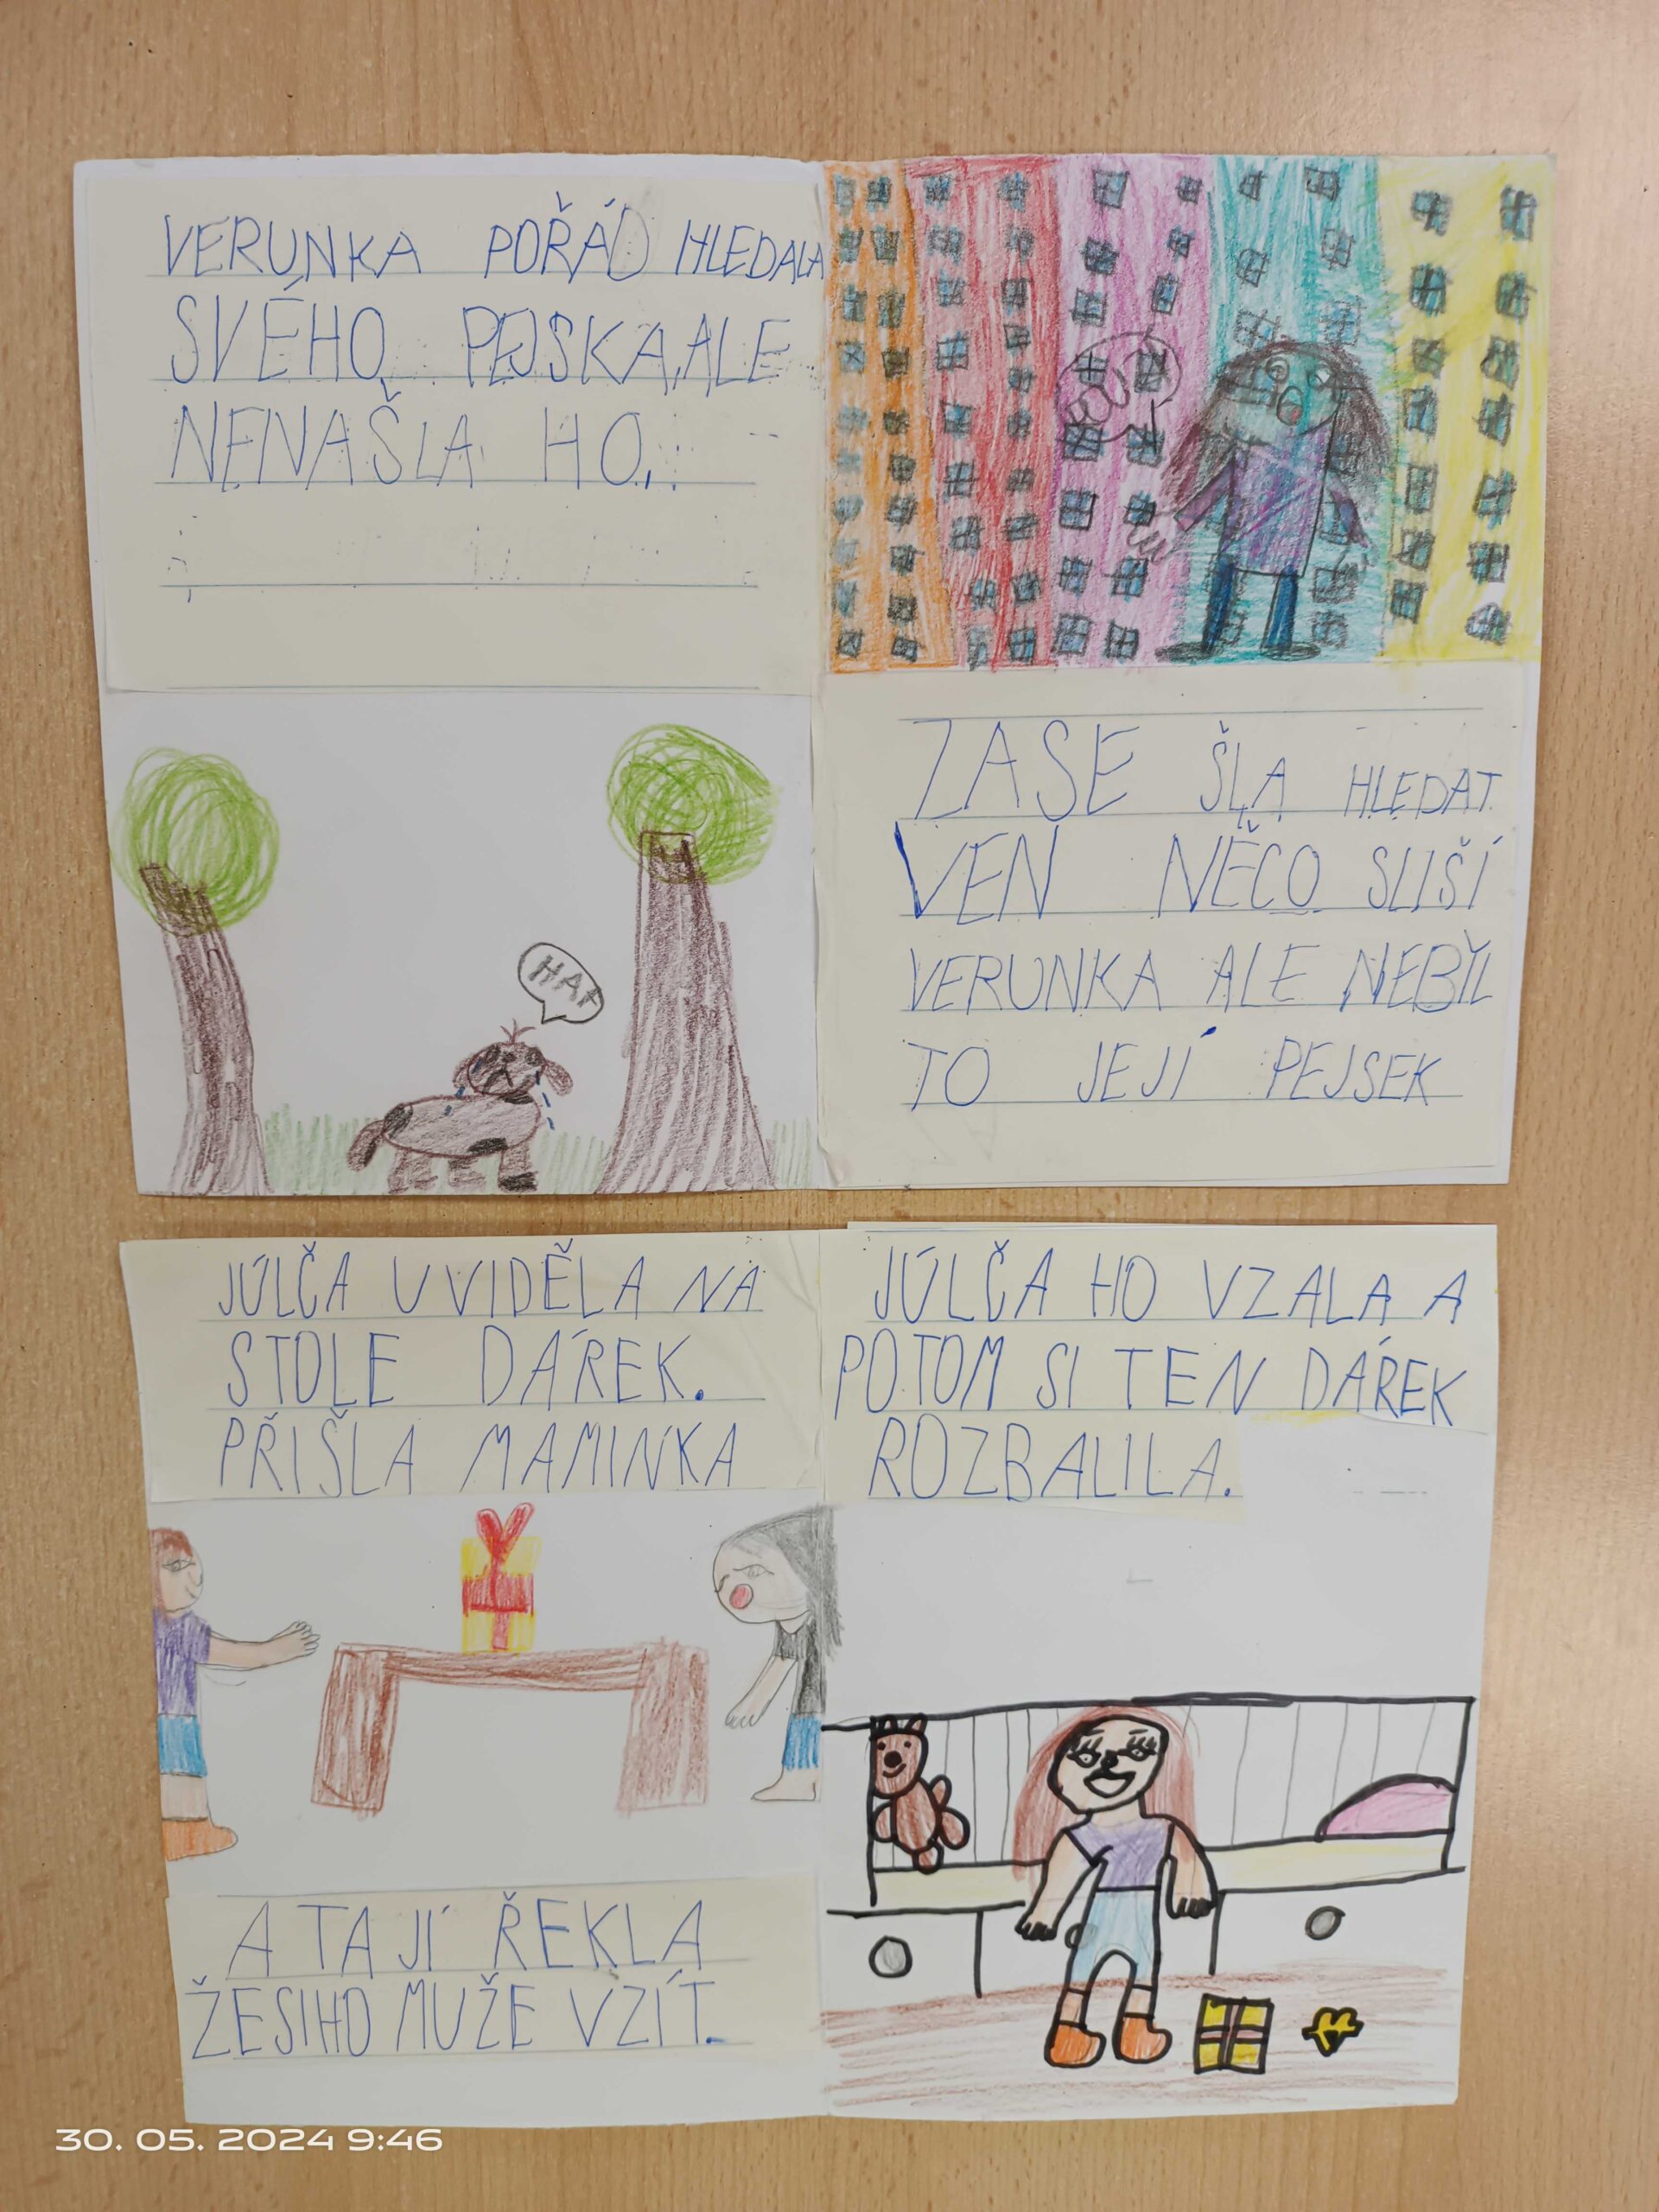 VERUNKA POŘÁD HLEDALA
SVÉHO PEJSKA, ALE
NENAŠLA HO.
HAF
ZASE ŠLA HLEDAT
VEN NĚCO SLIŠÍ
VERUNKA ALE NEBIL
TO JEJÍ PEJSEK
JÚLČA UVIDĚLA NA
STOLE DÁREK.
PŘIŠLA MAMINKA
A TA JÍ ŘEKLA
ŽESIHO MUŽE VZÍT.
JÚLČA HO VZALA A
POTOM SI TEN DÁREK
ROZBALILA.
30. 05. 2024 9:46